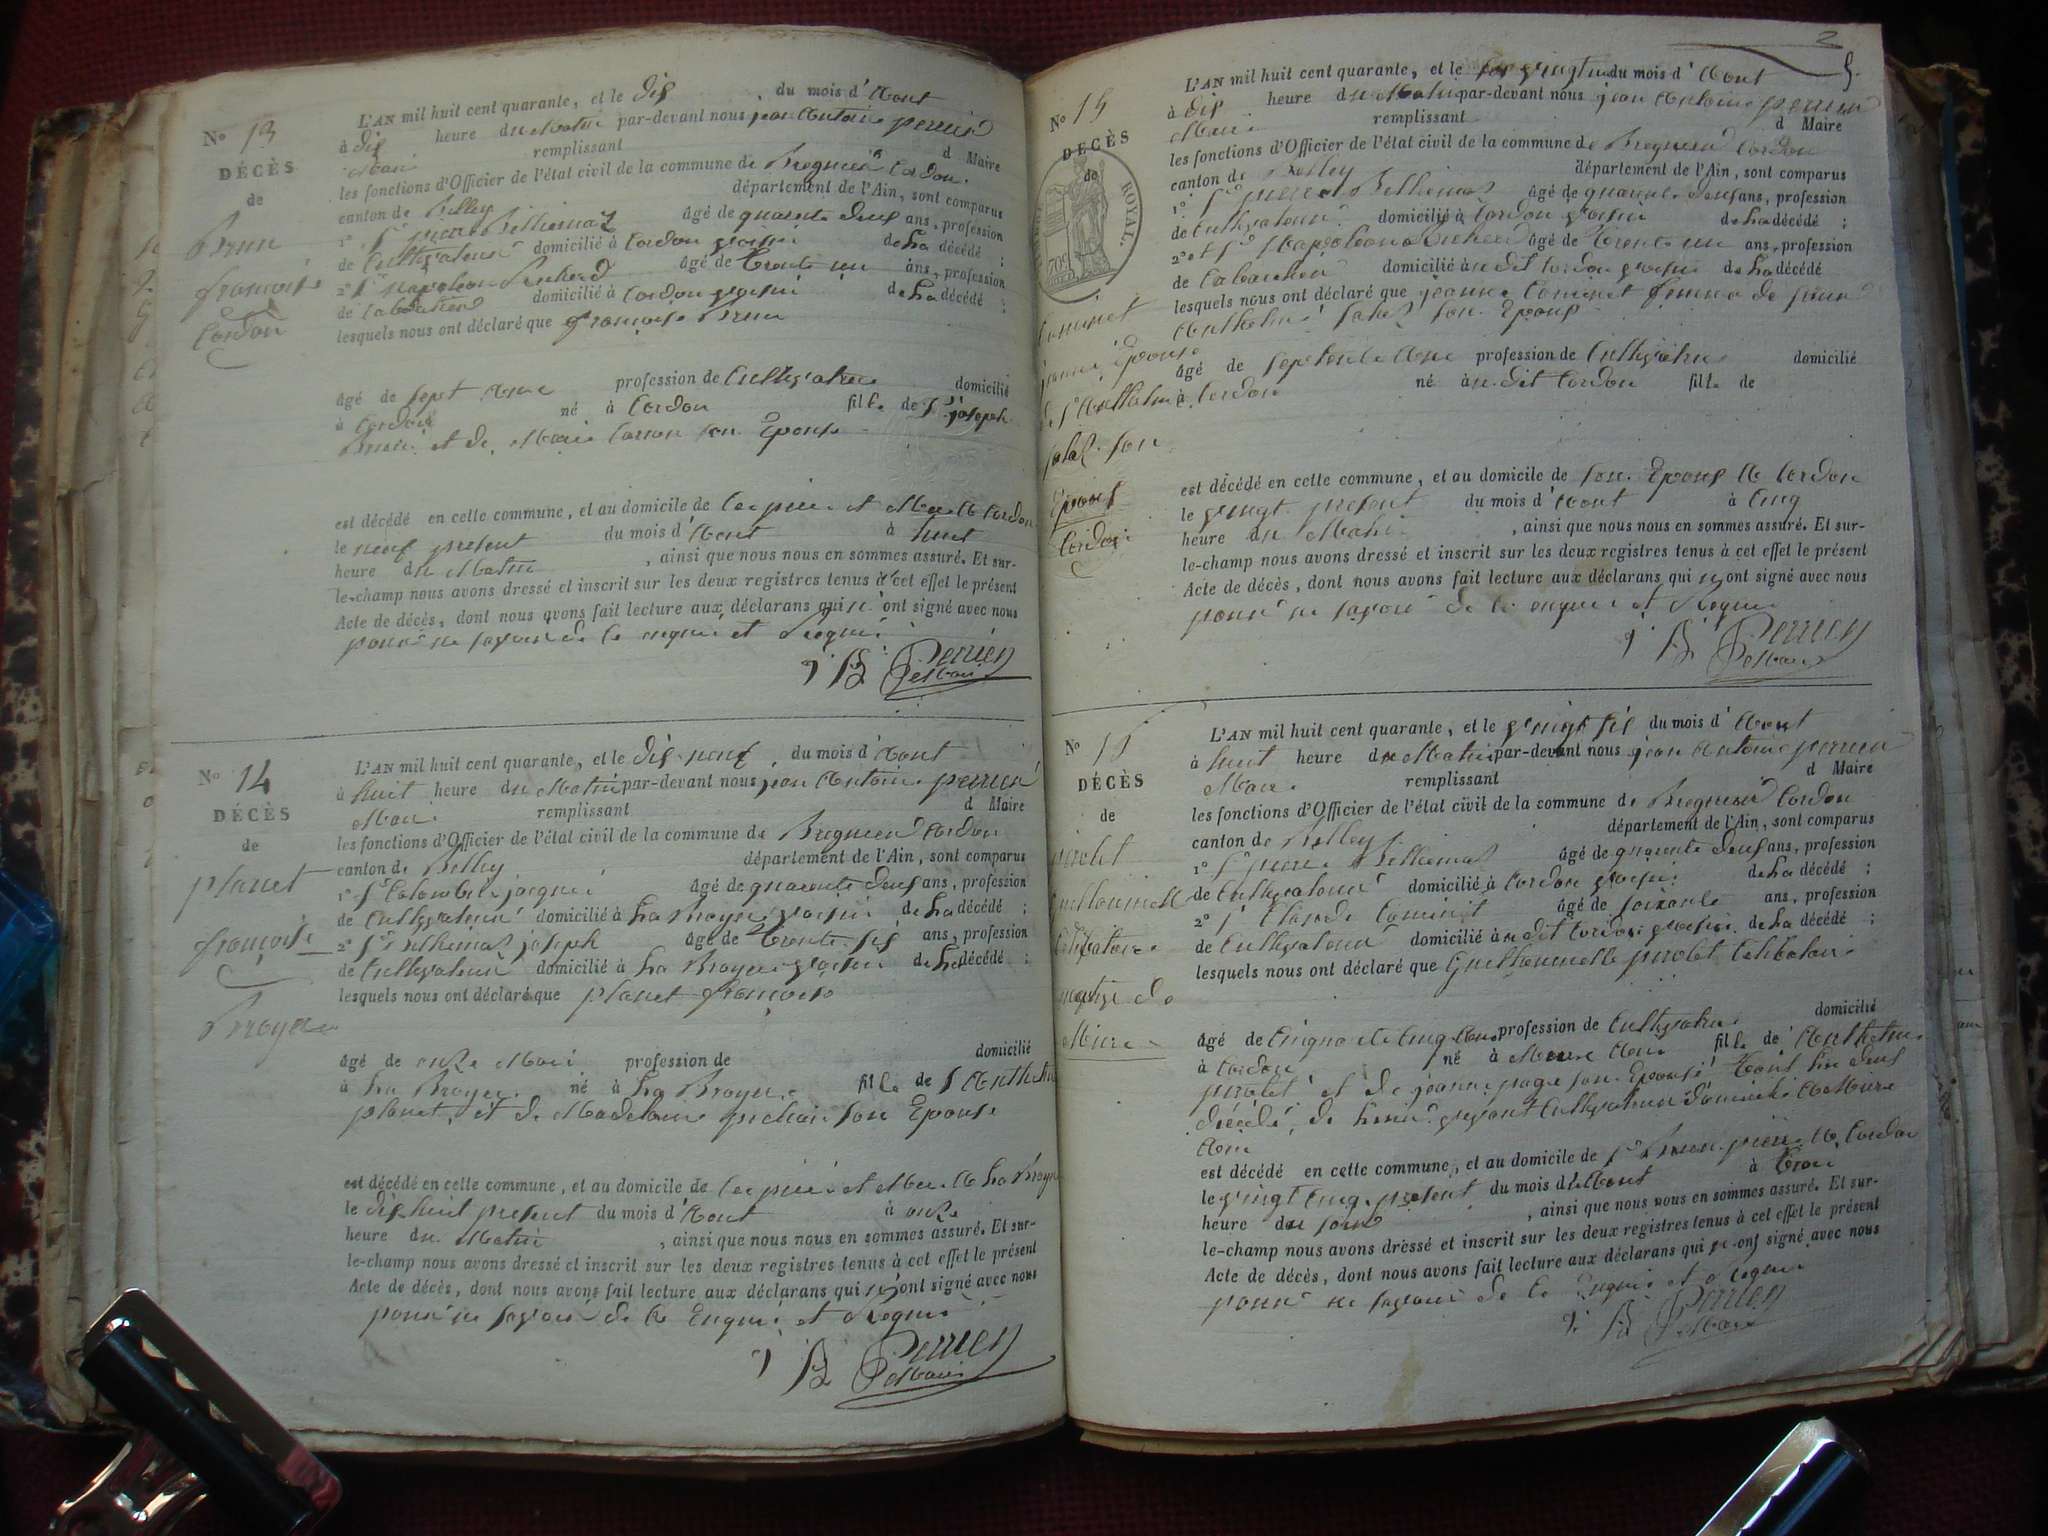 No 13
DÉCÈS
de
Brun
françoise
Cordon
L'AN mil huit cent quarante, et le dix du mois d'Aout
à dix heure du Matin par-devant nous jean Antoine perrier
Maire remplissant d Maire
les fonctions d'Officier de l'état civil de la commune de Bregnier Cordon
canton de Belley département de l'Ain, sont comparus
1° Sr pierre Bellemas âgé de quarante deux ans, profession
de Cultivateur domicilié à Cordon voisin de La décédé ;
2° Sr napoleon âgé de trente un ans, profession
de domicilié à Cordon voisin de La décédé ;
lesquels nous ont déclaré que françoise Brun
âgé de sept Ans profession de Cultivatrice domicilié
à Cordon né à Cordon fille de Sr joseph
Brun et de Marie son Epouse
est décédé en cette commune, et au domicile de ses père et Mere A Cordon
le neuf présent du mois d'Aout à huit
heure du Matin , ainsi que nous nous en sommes assuré. Et sur-
le-champ nous avons dressé et inscrit sur les deux registres tenus à cet effet le présent
Acte de décès, dont nous avons fait lecture aux déclarans qui n'ont signé avec nous
pour ne savoir de ce enquis et Requis
J B Perrier
Maire
No 14
DÉCÈS
de
planet
françoise
Broyer
L'AN mil huit cent quarante, et le dix neuf du mois d'Aout
à huit heure du Matin par-devant nous jean Antoine perrier
Maire remplissant d Maire
les fonctions d'Officier de l'état civil de la commune de Bregnier Cordon
canton de Belley département de l'Ain, sont comparus
1° Sr jacques âgé de quarante deux ans, profession
de Cultivateur domicilié à La voisin de La décédé ;
2° Sr Bellemas joseph âgé de trente six ans, profession
de Cultivateur domicilié à La voisin de La décédé ;
lesquels nous ont déclaré que planet françoise
âgé de onze Mois profession de domicilié
à La né à La fille de Sr Anthelme
planet et de Madelaine son Epouse
est décédé en cette commune, et au domicile de ses père et Mere A La
le dix huit présent du mois d'Aout à onze
heure du Matin , ainsi que nous nous en sommes assuré. Et sur-
le-champ nous avons dressé et inscrit sur les deux registres tenus à cet effet le présent
Acte de décès, dont nous avons fait lecture aux déclarans qui n'ont signé avec nous
pour ne savoir de ce Enquis et Requis
J B Perrier
Maire
2
5
No 15
DÉCÈS
de
ROYAL
Epouse
de Sr Anthelme
son
Epoux
Cordon
L'AN mil huit cent quarante, et le vingt un du mois d'Aout
à dix heure du Matin par-devant nous jean Antoine perrier
Maire remplissant d Maire
les fonctions d'Officier de l'état civil de la commune de Bregnier Cordon
canton de Belley département de l'Ain, sont comparus
1° Sr pierre Bellemas âgé de quarante deux ans, profession
de Cultivateur domicilié à Cordon voisin de La décédé ;
2° et Sr Napoleon âgé de trente un ans, profession
de domicilié à u dit Cordon voisin de La décédé
lesquels nous ont déclaré que jeanne femme de
Anthelme son Epoux
âgé de septente Ans profession de Cultivatrice domicilié
à Cordon né à u dit Cordon fille de
est décédé en cette commune, et au domicile de son Epoux A Cordon
le vingt présent du mois d'Aout à Cinq
heure du Matin , ainsi que nous nous en sommes assuré. Et sur-
le-champ nous avons dressé et inscrit sur les deux registres tenus à cet effet le présent
Acte de décès, dont nous avons fait lecture aux déclarans qui n'ont signé avec nous
pour ne savoir de ce enquis et Requis
J B Perrier
Maire
No
DÉCÈS
de
Celibataire
L'AN mil huit cent quarante, et le vingt six du mois d'Aout
à huit heure du Matin par-devant nous jean Antoine perrier
Maire remplissant d Maire
les fonctions d'Officier de l'état civil de la commune de Bregnier Cordon
canton de Belley département de l'Ain, sont comparus
1° Sr pierre Bellemas âgé de quarante deux ans, profession
de Cultivateur domicilié à Cordon voisin de La décédé ;
2° Sr Claude âgé de soixante ans, profession
de Cultivateur domicilié à u dit Cordon voisin de La décédé ;
lesquels nous ont déclaré que Celibataire
âgé de Cinquante Cinq Ans profession de Cultivatrice domicilié
à Cordon né à fille de Anthelme
et de jeanne son Epouse tous les deux
décédé de leur vivant Cultivateur domicilié A
Ain
est décédé en cette commune, et au domicile de Sr Brun pierre A Cordon
le vingt Cinq présent du mois d'Aout à trois
heure du soir , ainsi que nous nous en sommes assuré. Et sur-
le-champ nous avons dressé et inscrit sur les deux registres tenus à cet effet le présent
Acte de décès, dont nous avons fait lecture aux déclarans qui n'ont signé avec nous
pour ne savoir de ce Enquis et Requis
J B Perrier
Maire